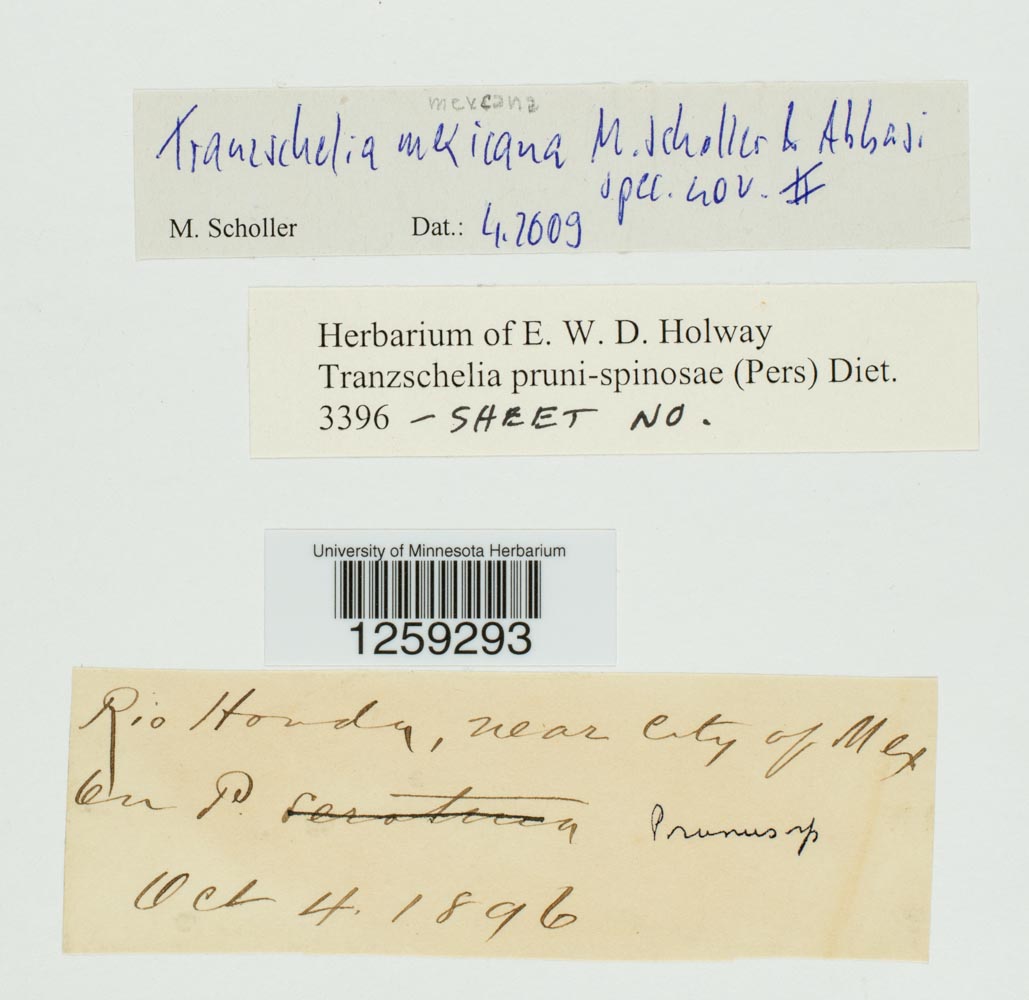 mexicana
Tranzschelia mexicana M. Scholler & Abbasi
spec. nov. II
M. Scholler Dat.: 4.2009
Herbarium of E. W. D. Holway
Tranzschelia pruni-spinosae (Pers) Diet.
3396 - SHEET NO.
University of Minnesota Herbarium
1259293
Rio Honda, near City of Mex
On P. serotina Prunus sp
Oct 4. 1896